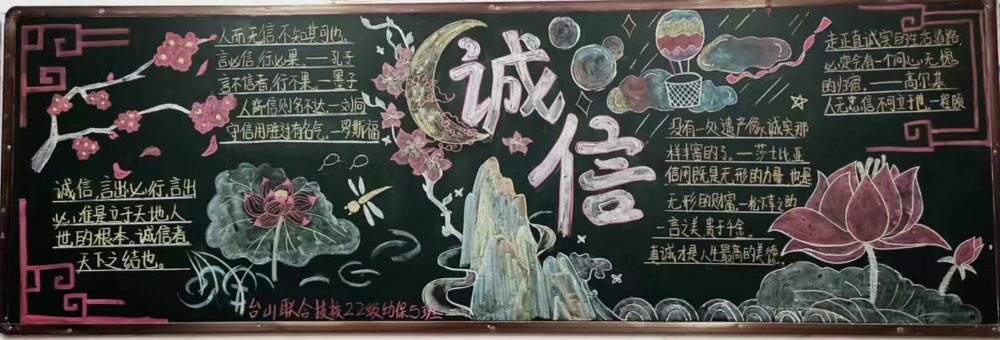 人而无信,不知其可也
言必信,行必果。——孔子
言不信者,行不果。—墨子
人背信则名不达—刘向
守信用胜过有名气。—罗斯福
诚信,言出必行,言出
必准是立于天地,人
世的根本。诚信者,
天下之结也。
诚信
没有一处遗产像诚实那
样丰富的了。——莎士比亚
信用既是无形的力量,也是
无形的财富。—松下幸之助
一言之美,贵于千金。
真诚才是人生最高的美德。
走正直诚实的生活道路,
必定会有一个问心无愧
的归宿。——高尔基
人无忠信,不可立于世。—程颐
台山联合技校22级幼保5班